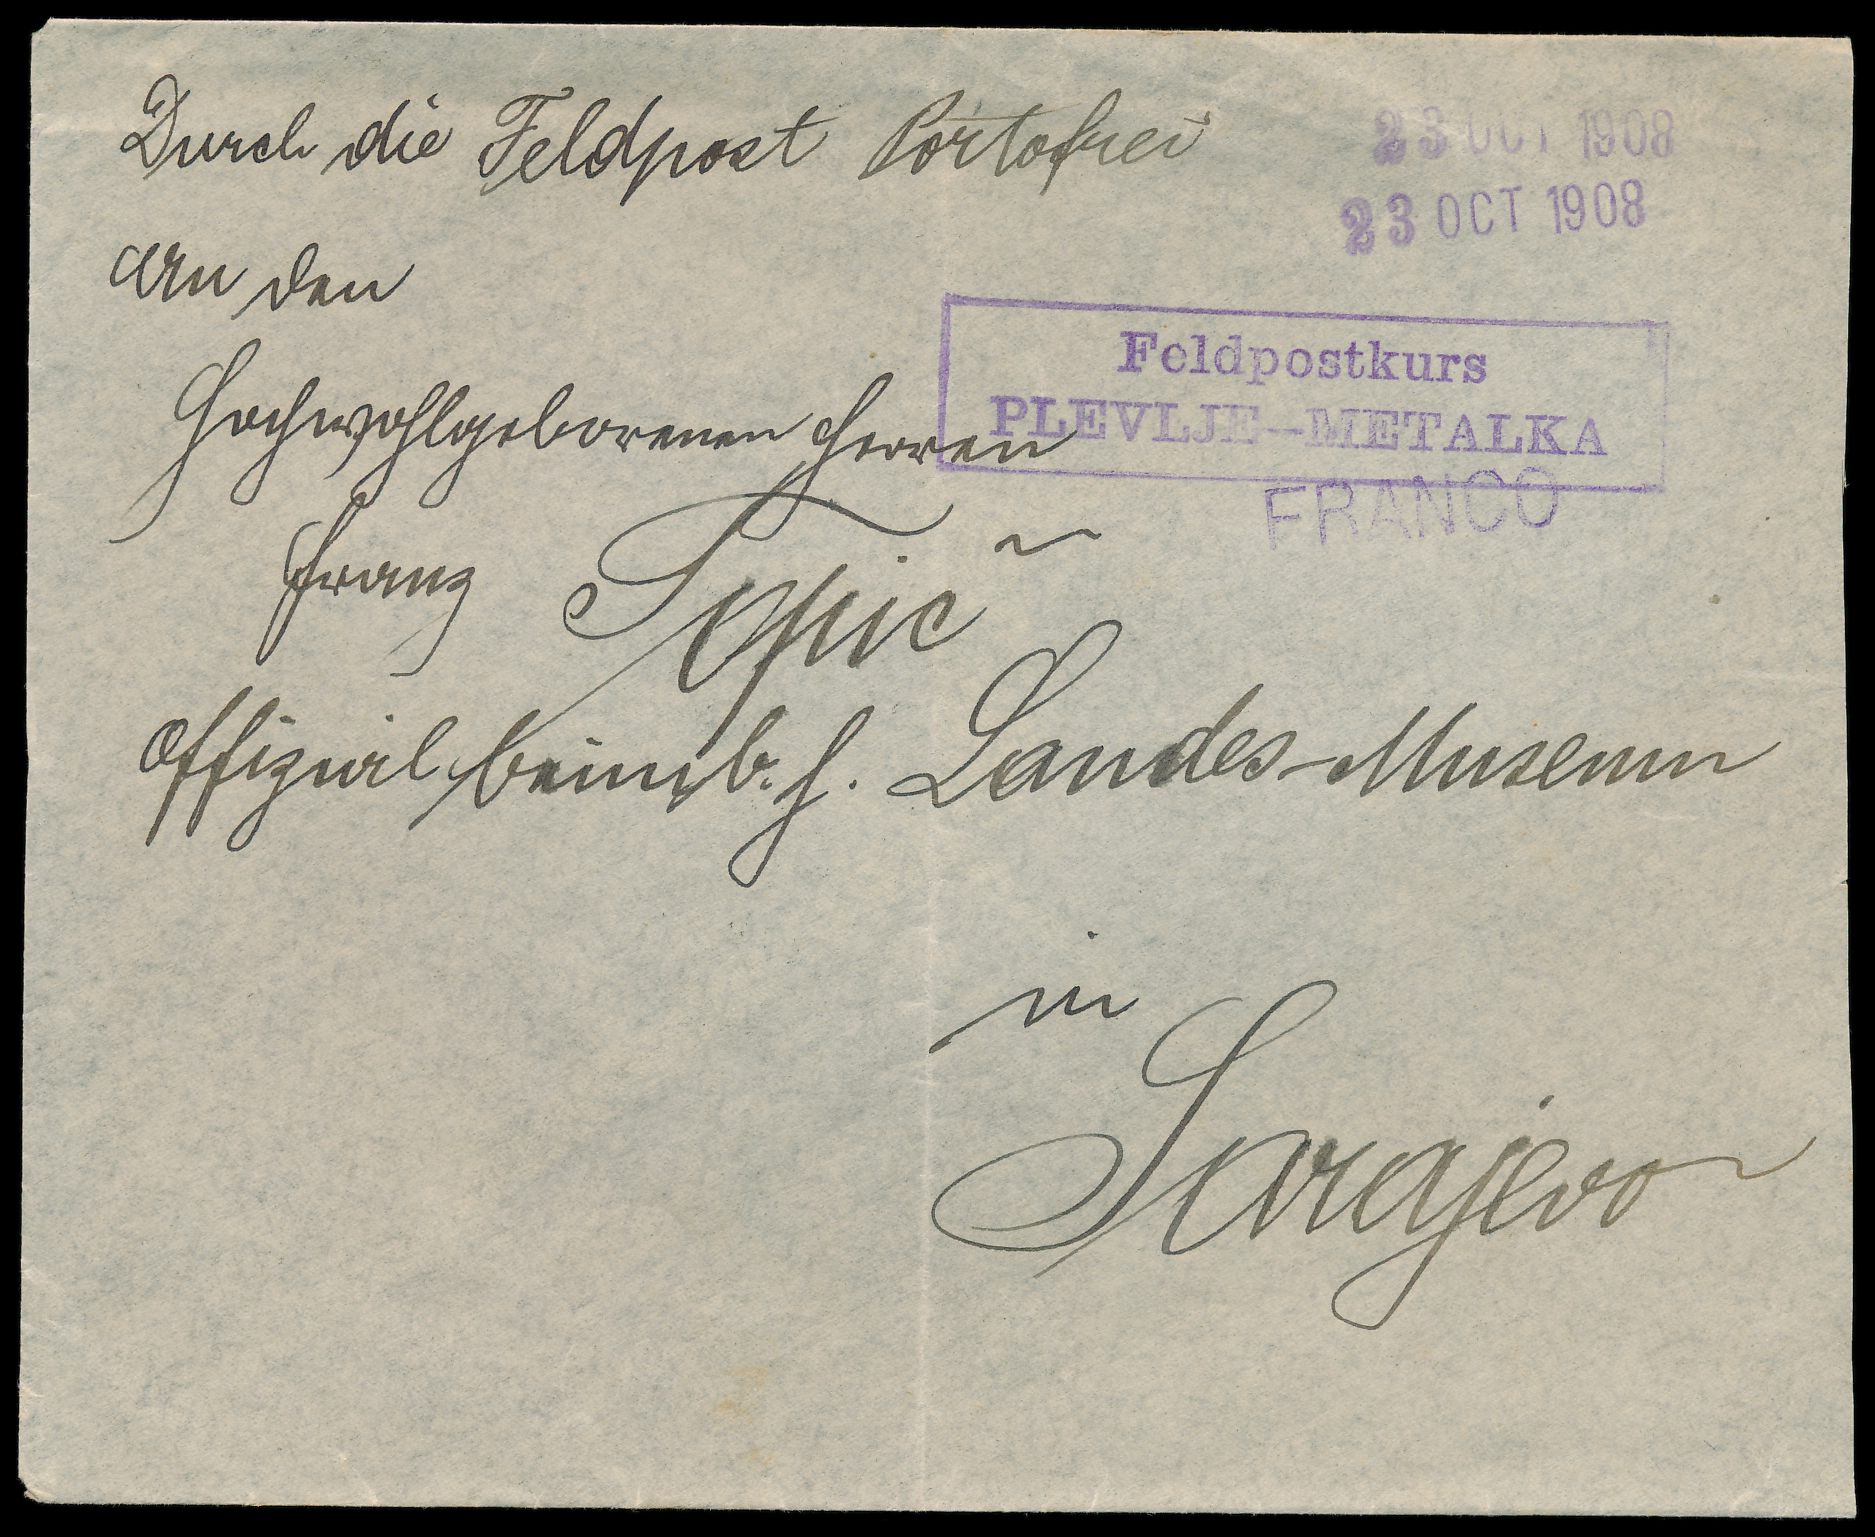 Durch die Feldpost Portofrei
23 OCT 1908
23 OCT 1908
An den
Feldpostkurs
PLEVLJE–METALKA
FRANCO
Hochwohlgeborenen Herren
Franz Topič
Offizial beim b. h. Landes-Museum
in
Sarajevo